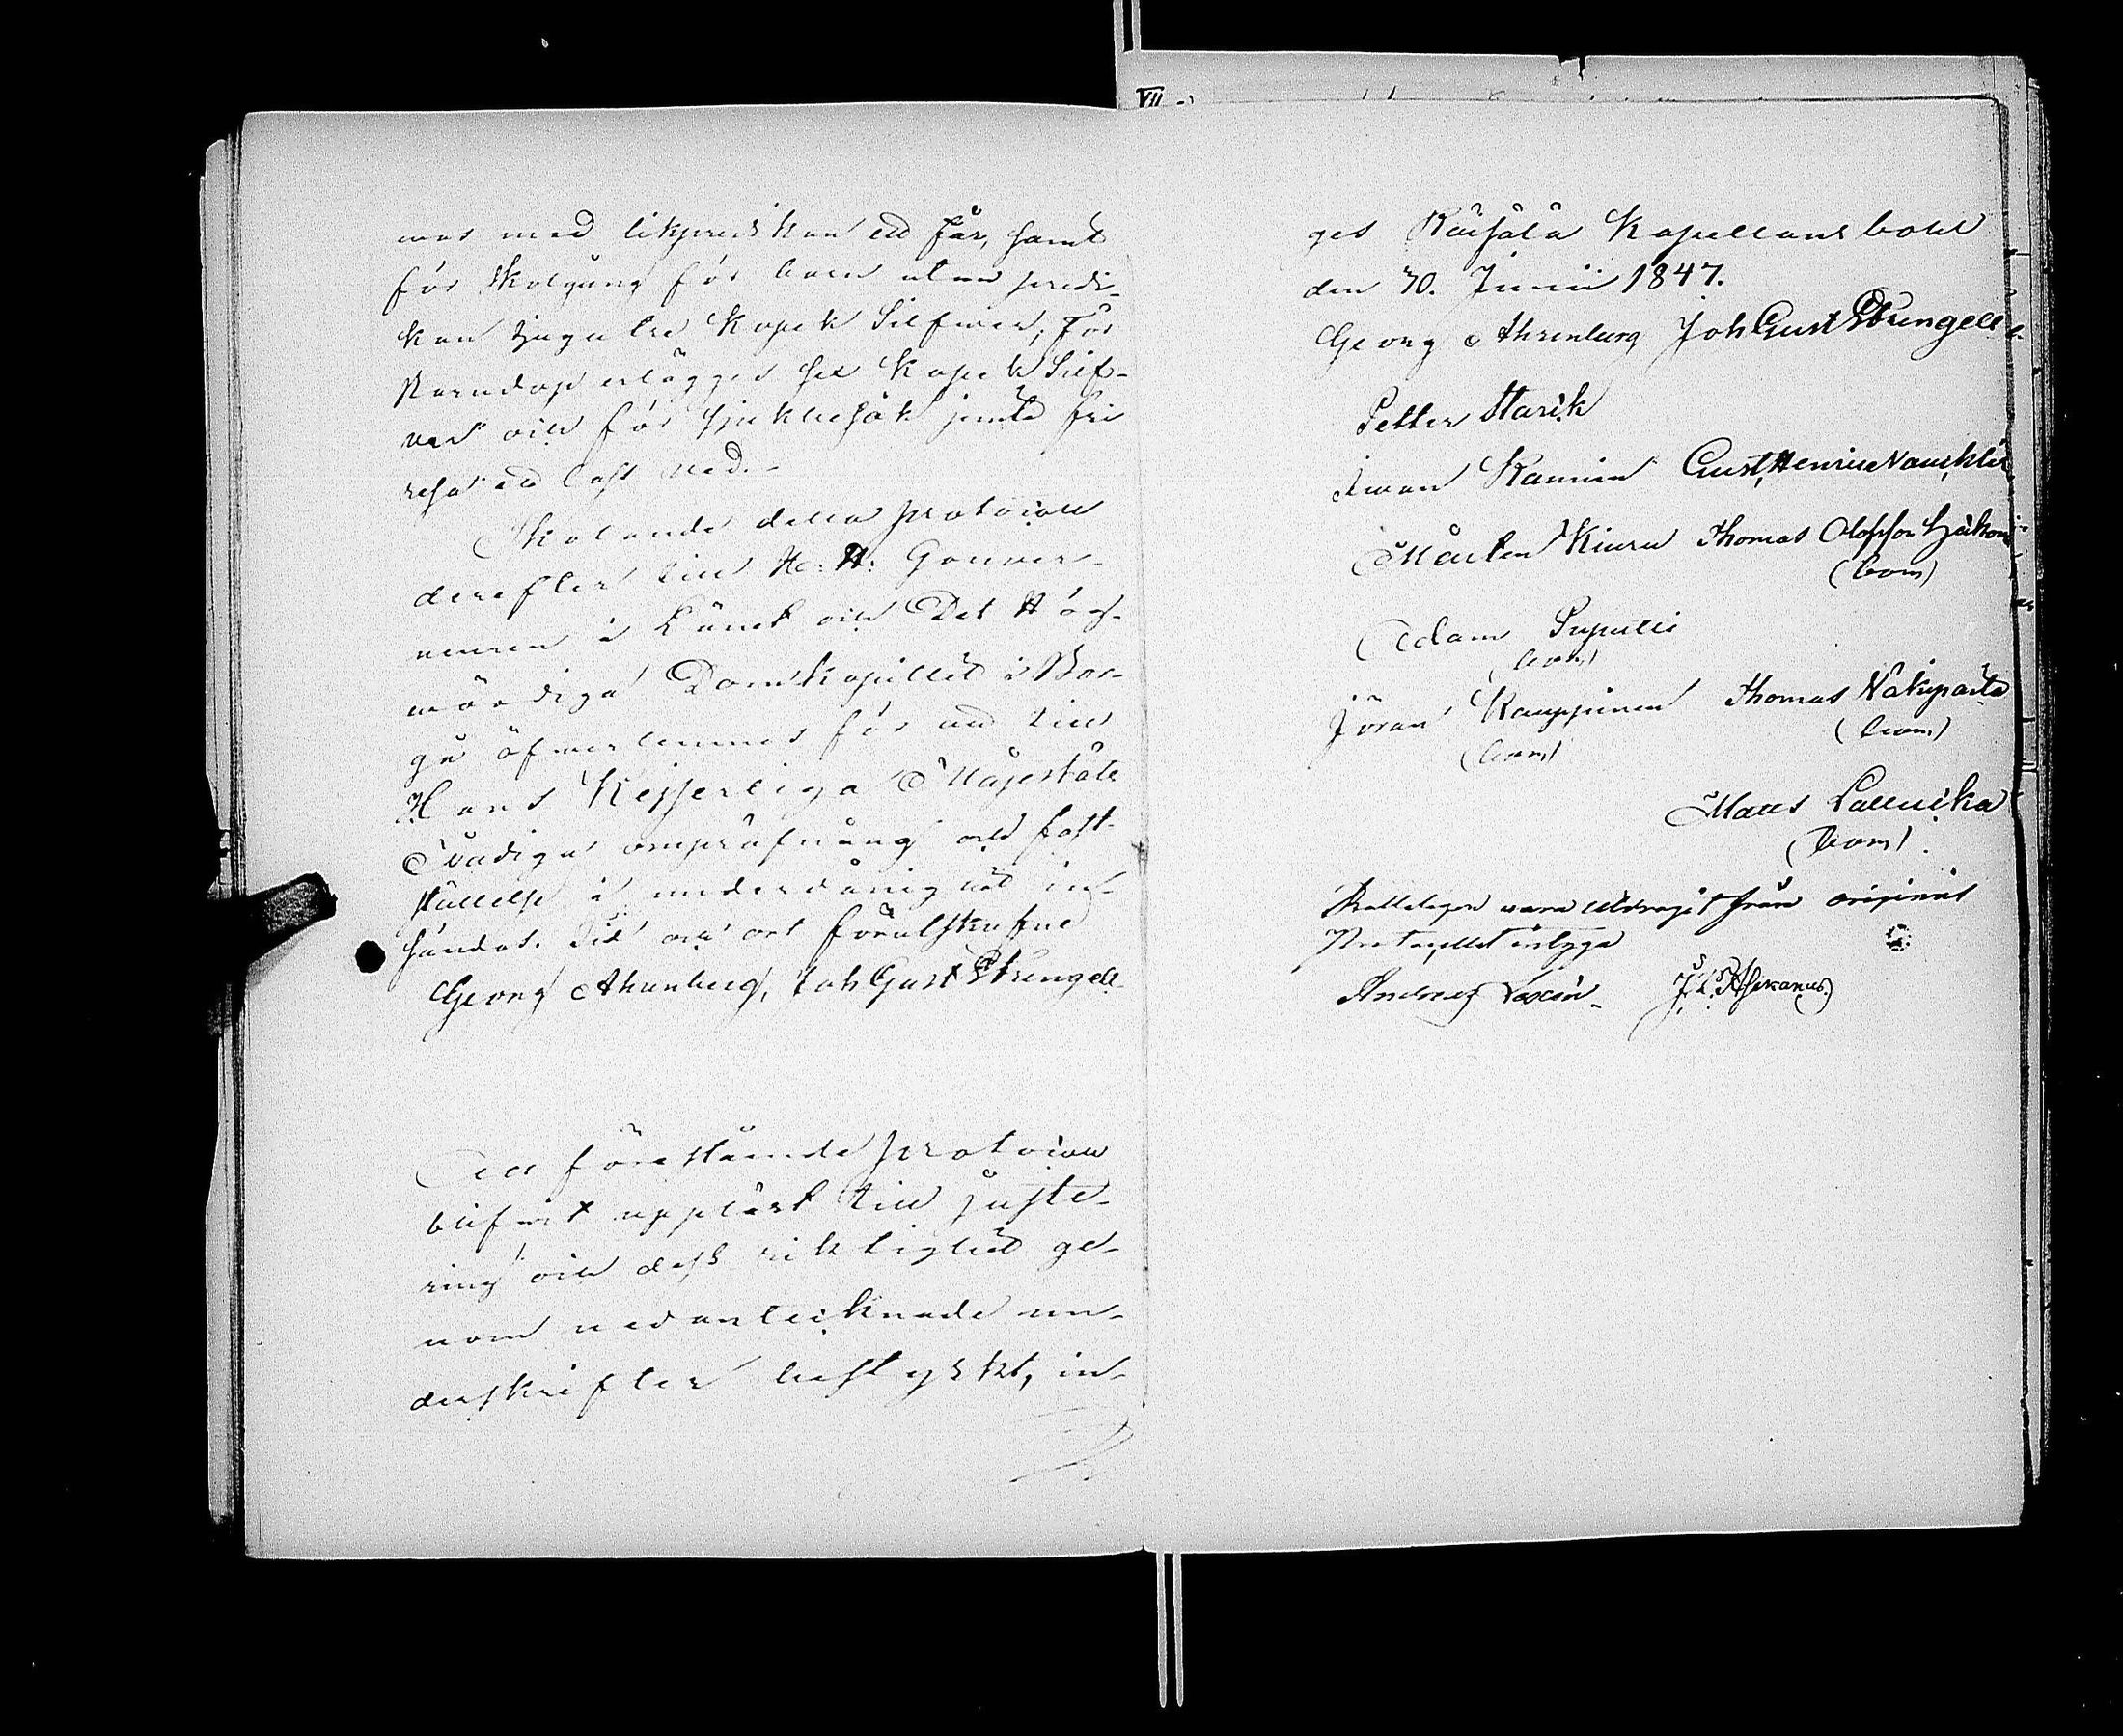 nas med likpredikan ett får, samt
för skolgång för barn utan predi-
kan tjugutre Kopek Silfver; För
Barndop erlägges sex Kopek Silf-
ver och för sjukbesök jemte fri
resa ett
Skolande detta protocoll
derefter till H. H. Gouver-
neuren i Länet och Det Hög-
vördiga Domkapitlet i Bor-
gå öfverlemnas för att till
Hans Kejserliga Majestäts
Nådiga ompröfning och fast-
ställelse i underdånighet in-
sändas. Tid och ort förutskrefne
Georg Ahrenberg, Joh Gust Strengell
Att förestående protocoll
blifvit uppläst till juste-
ring och dess riktighet ge-
nom nedanteiknade un-
derskrifter bestyrkt, in-
VII
ges Räisälä Kapellansbohl
den 30. Junii 1847.
Georg Ahrenberg Joh Gust Strengell
Petter Starck
Iwan Kannin Gust, Henric
Mårten Kiuru Thomas Olofsson
(bom)
Adam Pupulli
(bom)
Jöran Kauppinen Thomas Näkyparta
(bom) (bom)
Matts Lallukka
(bom)
Rätteligen vara utdragit från original
Protocollet intyga
Andreas